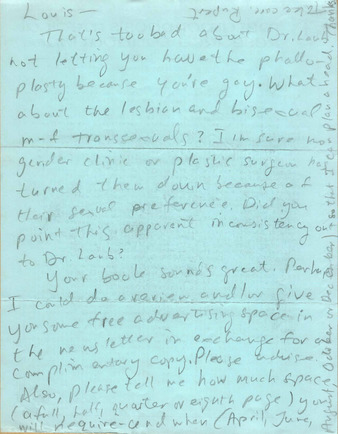 Louis —
That's too bad about Dr. Laub
not letting you have the phallo-
plasty because you're gay. What
about the lesbian and bisexual
m-f transsexuals? I'm sure no
gender clinic or plastic surgeon has
turned them down because of
their sexual preference. Did you
point this apparent inconsistency out
to Dr. Laub?
Your book sounds great. Perhaps
I could do a review and/or give
you some free advertising space in
the newsletter in exchange for a
complimentary copy. Please advise.
Also, please tell me how much space
(a full, half, quarter or eighth page) you
will require – and when (April, June,
August, October or December) so that I can plan ahead. Thanks
Take care, Rupert